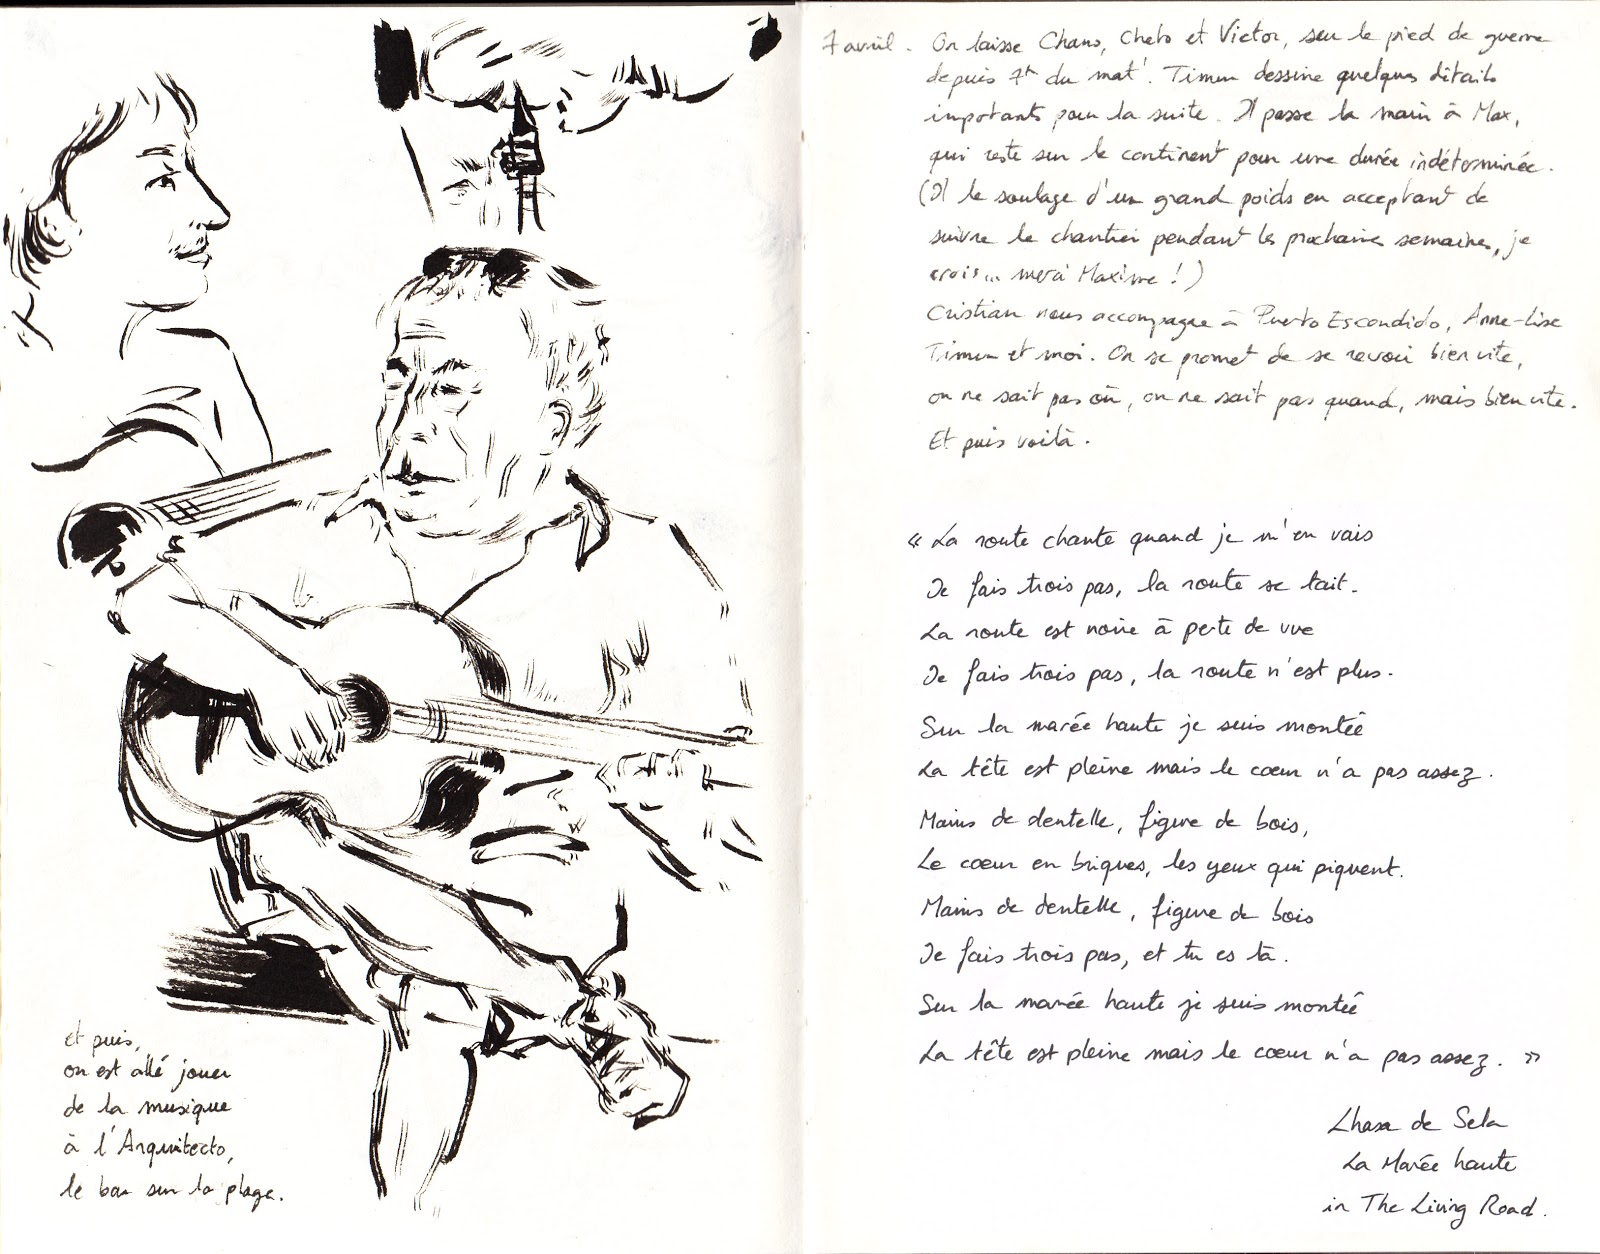 et puis,
on est allé jouer
de la musique
à l'Arquitecto,
le bar sur la plage.
7 avril. On laisse Chano, Cheto et Victor, sur le pied de guerre
depuis 7h du mat'. Timun dessine quelques détails
importants pour la suite. Il passe la main à Max,
qui reste sur le continent pour une durée indéterminée.
(Il le soulage d'un grand poids en acceptant de
suivre le chantier pendant les prochaines semaines, je
crois... merci Maxime !)
Cristian nous accompagne à Puerto Escondido, Anne-Lise
Timun et moi. On se promet de se revoir bien vite,
on ne sait pas où, on ne sait pas quand, mais bien vite.
Et puis voilà.
« La route chante quand je m'en vais
Je fais trois pas, la route se tait.
La route est noire à perte de vue
Je fais trois pas, la route n'est plus.
Sur la marée haute je suis montée
La tête est pleine mais le coeur n'a pas assez.
Mains de dentelle, figure de bois,
Le coeur en briques, les yeux qui piquent.
Mains de dentelle, figure de bois
Je fais trois pas, et tu es là.
Sur la marée haute je suis montée
La tête est pleine mais le coeur n'a pas assez. »
Lhasa de Sela
La Marée haute
in The Living Road.